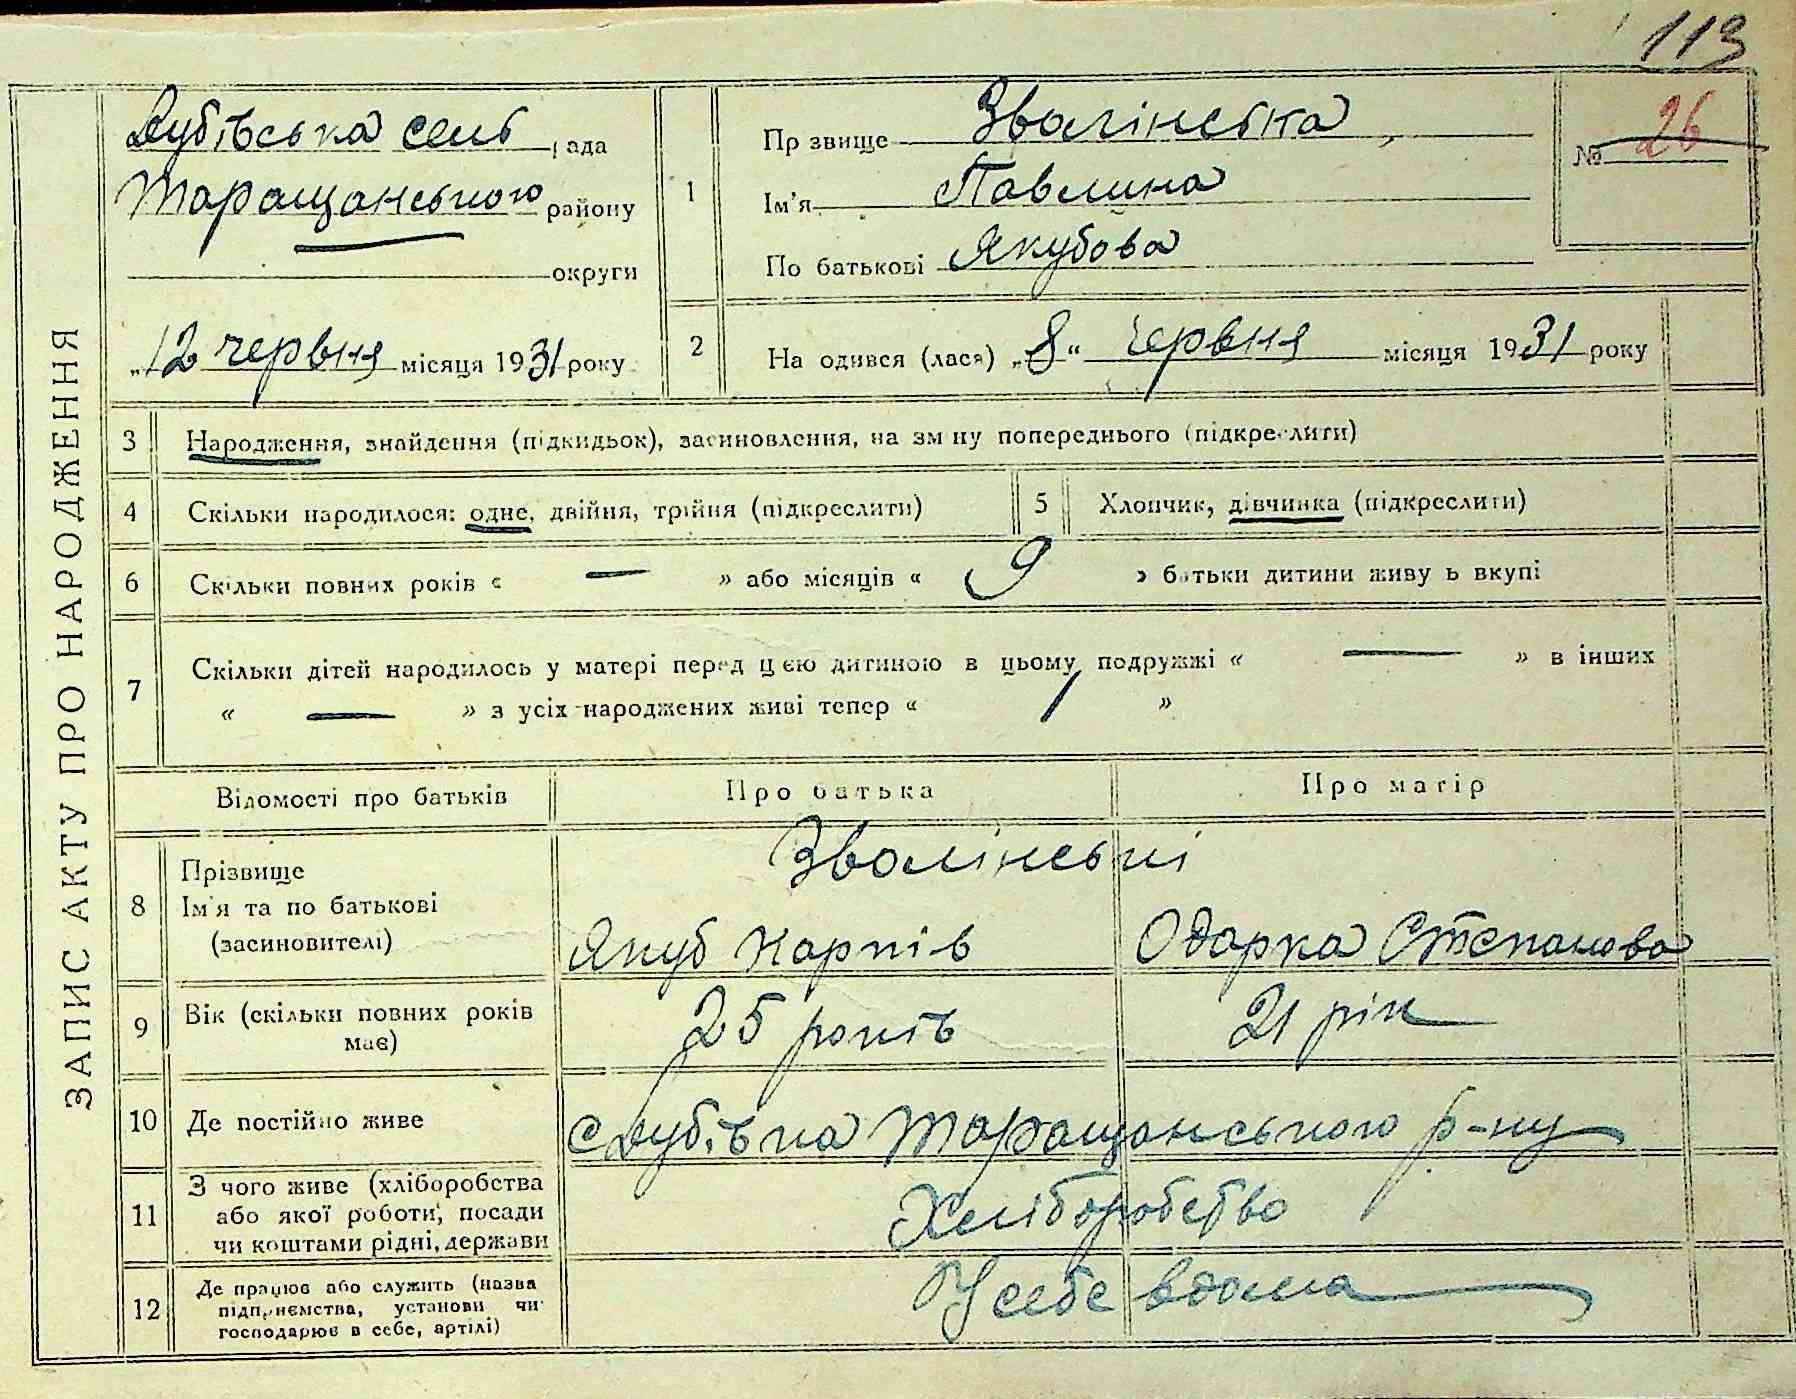 113
Дубівська сель рада
Таращанського району
округи
„12 червня місяця 1931 року
1
Прізвище Зволінська
Ім'я Павлина
По батькові Якубова
№ 26
2
Народився (лася) „8“ червня місяця 1931 року
ЗАПИС АКТУ ПРО НАРОДЖЕННЯ
3 Народження, знайдення (підкидьок), засиновлення, на зміну попереднього (підкреслити)
4 Скільки народилося: одне, двійня, трійня (підкреслити)
5 Хлопчик, дівчинка (підкреслити)
6 Скільки повних років « — » або місяців « 9 » батьки дитини живуть вкупі
7 Скільки дітей народилось у матері перед цією дитиною в цьому подружжі « — » в інших
« — » з усіх народжених живі тепер « 1 »
Відомості про батьків Про батька Про матір
8 Прізвище Зволінські
Ім'я та по батькові
(засиновителі) Якуб Карпів Одарка Степанова
9 Вік (скільки повних років має) 25 років 21 рік
10 Де постійно живе с Дубівка Таращанського р-ну
11 З чого живе (хліборобства
або якої роботи, посади
чи коштами рідні, держави Хліборобство
12 Де працює або служить (назва
підприємства, установи чи
господарює в себе, артілі) У себе вдома